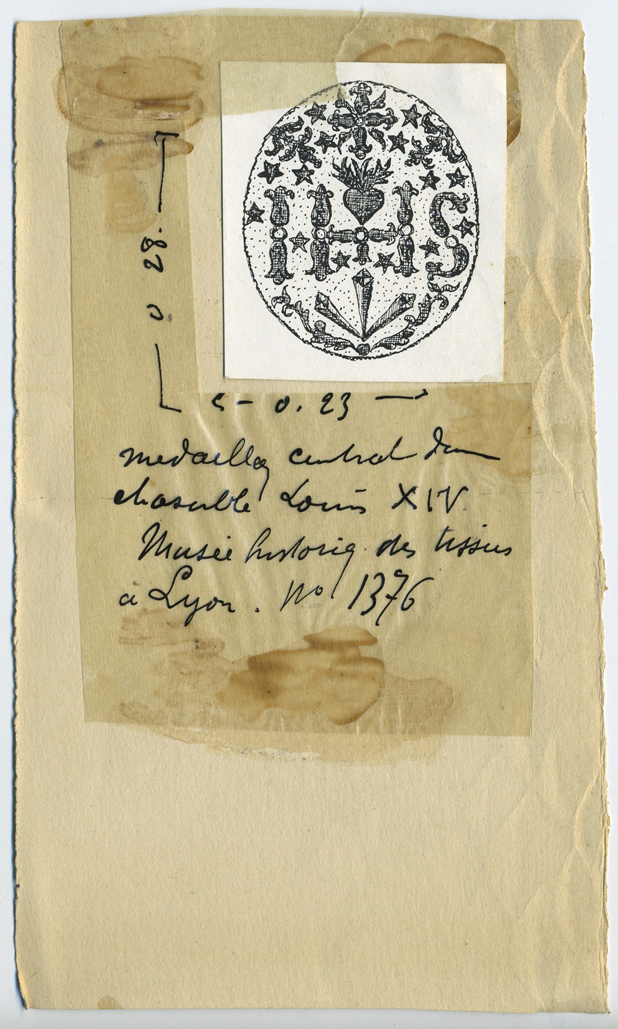 IHS
0 28.
0. 23
medaillon central d'une
chasuble Louis XIV
Musée historiq. des tissus
à Lyon. No 1376